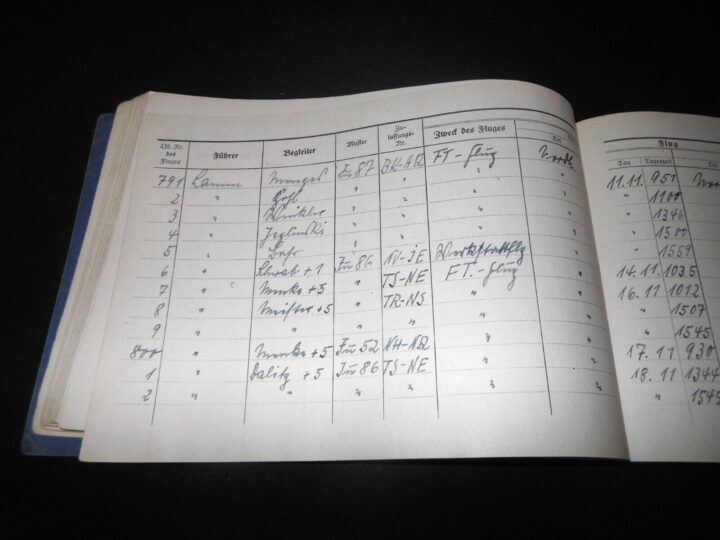 Lfd. Nr. des Fluges Führer Begleiter Muster Zulassungs-Nr. Zweck des Fluges Ort Flug
Tag Tageszeit
791 Lamm Menges Ju 87 BK-AQ FT-Flug 11.11. 951
2 " " " " " 1100
3 " Winkler " " " " 1346
4 " " " " " 1500
5 " " " " " 1559
6 " + 1 Ju 86 IE Werkstattflg " 14.11. 1035
7 " Menke + 5 " TS-NE F.T.-Flug " 16.11 1012
8 " Meister + 5 " TR-NS " " 1507
9 " " " " " " 1545
800 " Menke + 5 Ju 52 NH-NQ " " 17.11 930
1 " Dalitz + 5 Ju 86 TS-NE " " 18.11 1344
2 " " " " " " " 1545